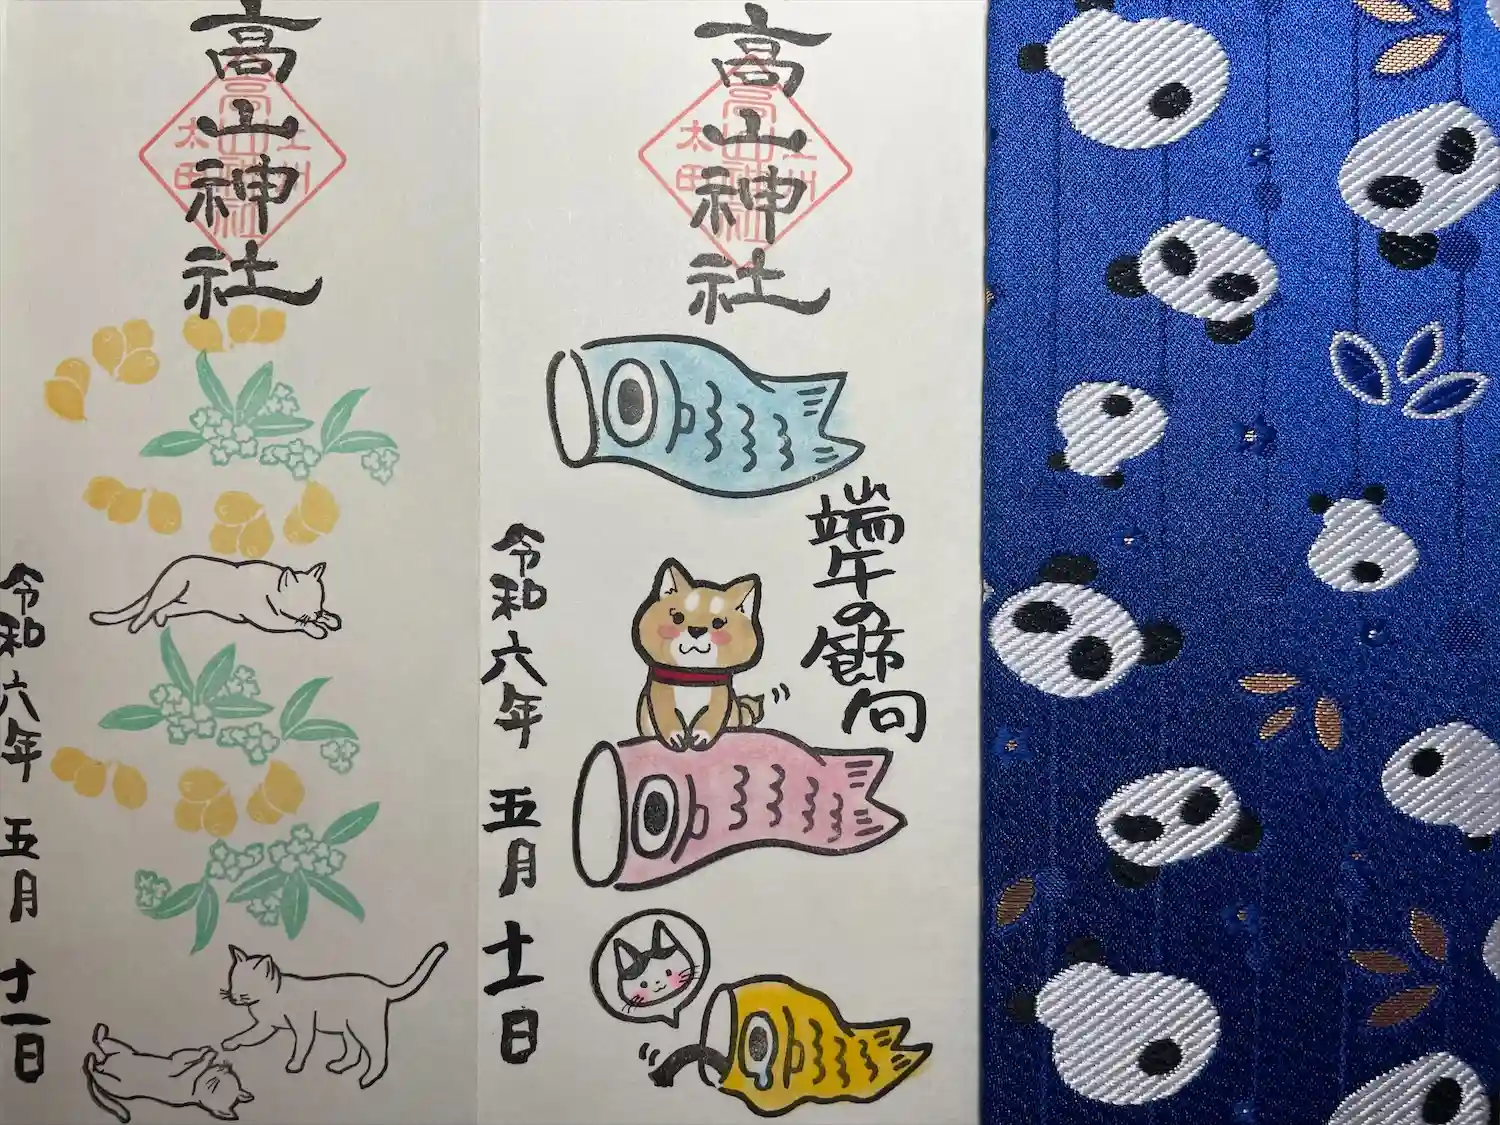 高山神社
上州
太田
高山神社
令和六年 五月 十一日
高山神社
上州
太田
高山神社
端午の節句
令和六年 五月 十一日